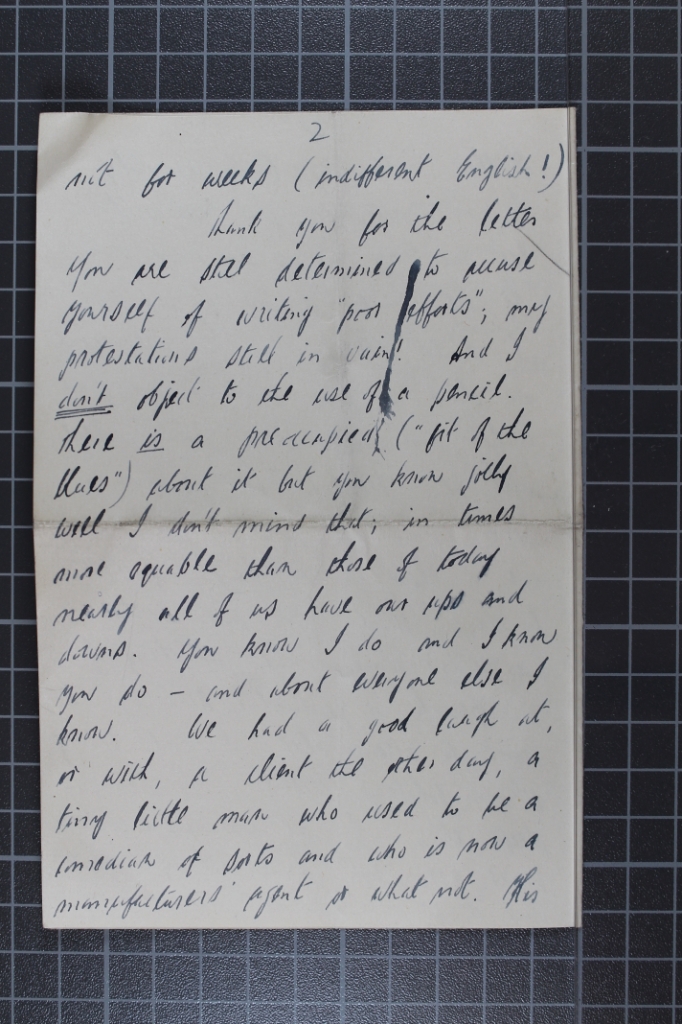 2
not for weeks (indifferent English!)
Thank you for the letter
You are still determined to accuse
yourself of writing "poor efforts"; my
protestations still in vain! And I
don't object to the use of a pencil.
There is a preoccupied ("fit of the
blues") about it but you know jolly
well I don't mind that; in times
more equable than those of today
nearly all of us have our ups and
downs. You know I do and I know
you do – and about everyone else I
know. We had a good laugh at,
or with, a client the other day, a
tiny little man who used to be a
comedian of sorts and who is now a
manufacturers' agent or what not. His